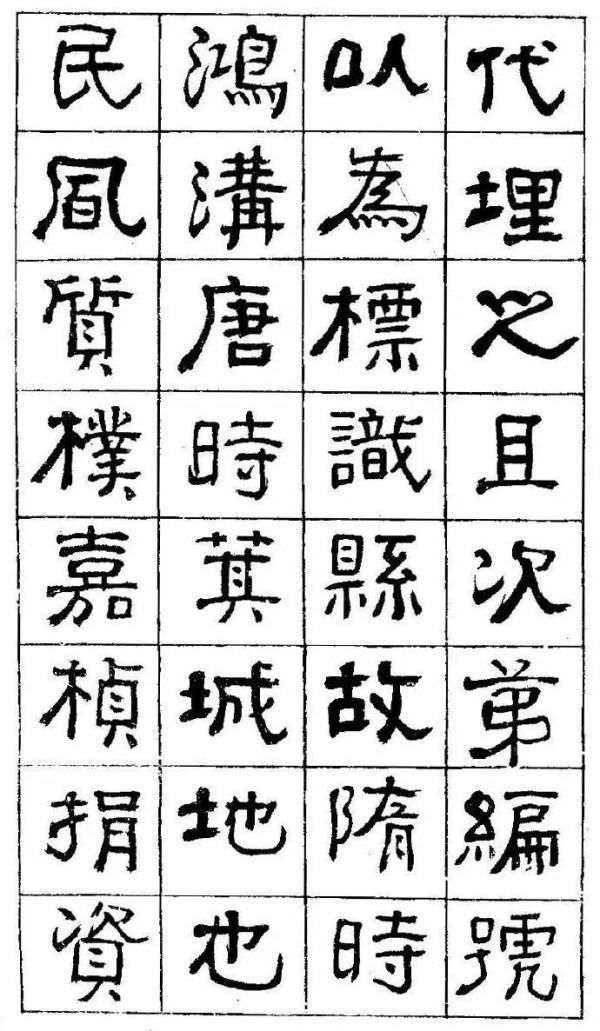 代埋之且次第編號
以為標識縣故隋時
鴻溝唐時萁城地也
民風質樸嘉楨捐資